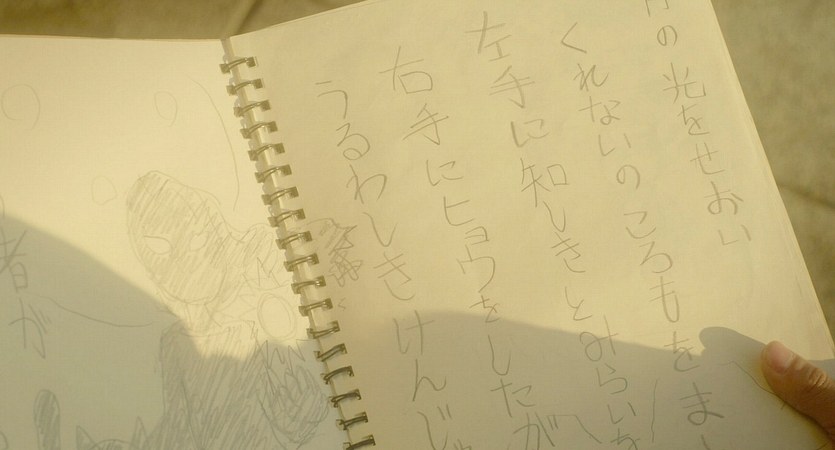 の光をせおい
くれないのころもをま
左手に知しきとみらいを
右手にヒョウをしたが
うるわしきけんじゃ
者が